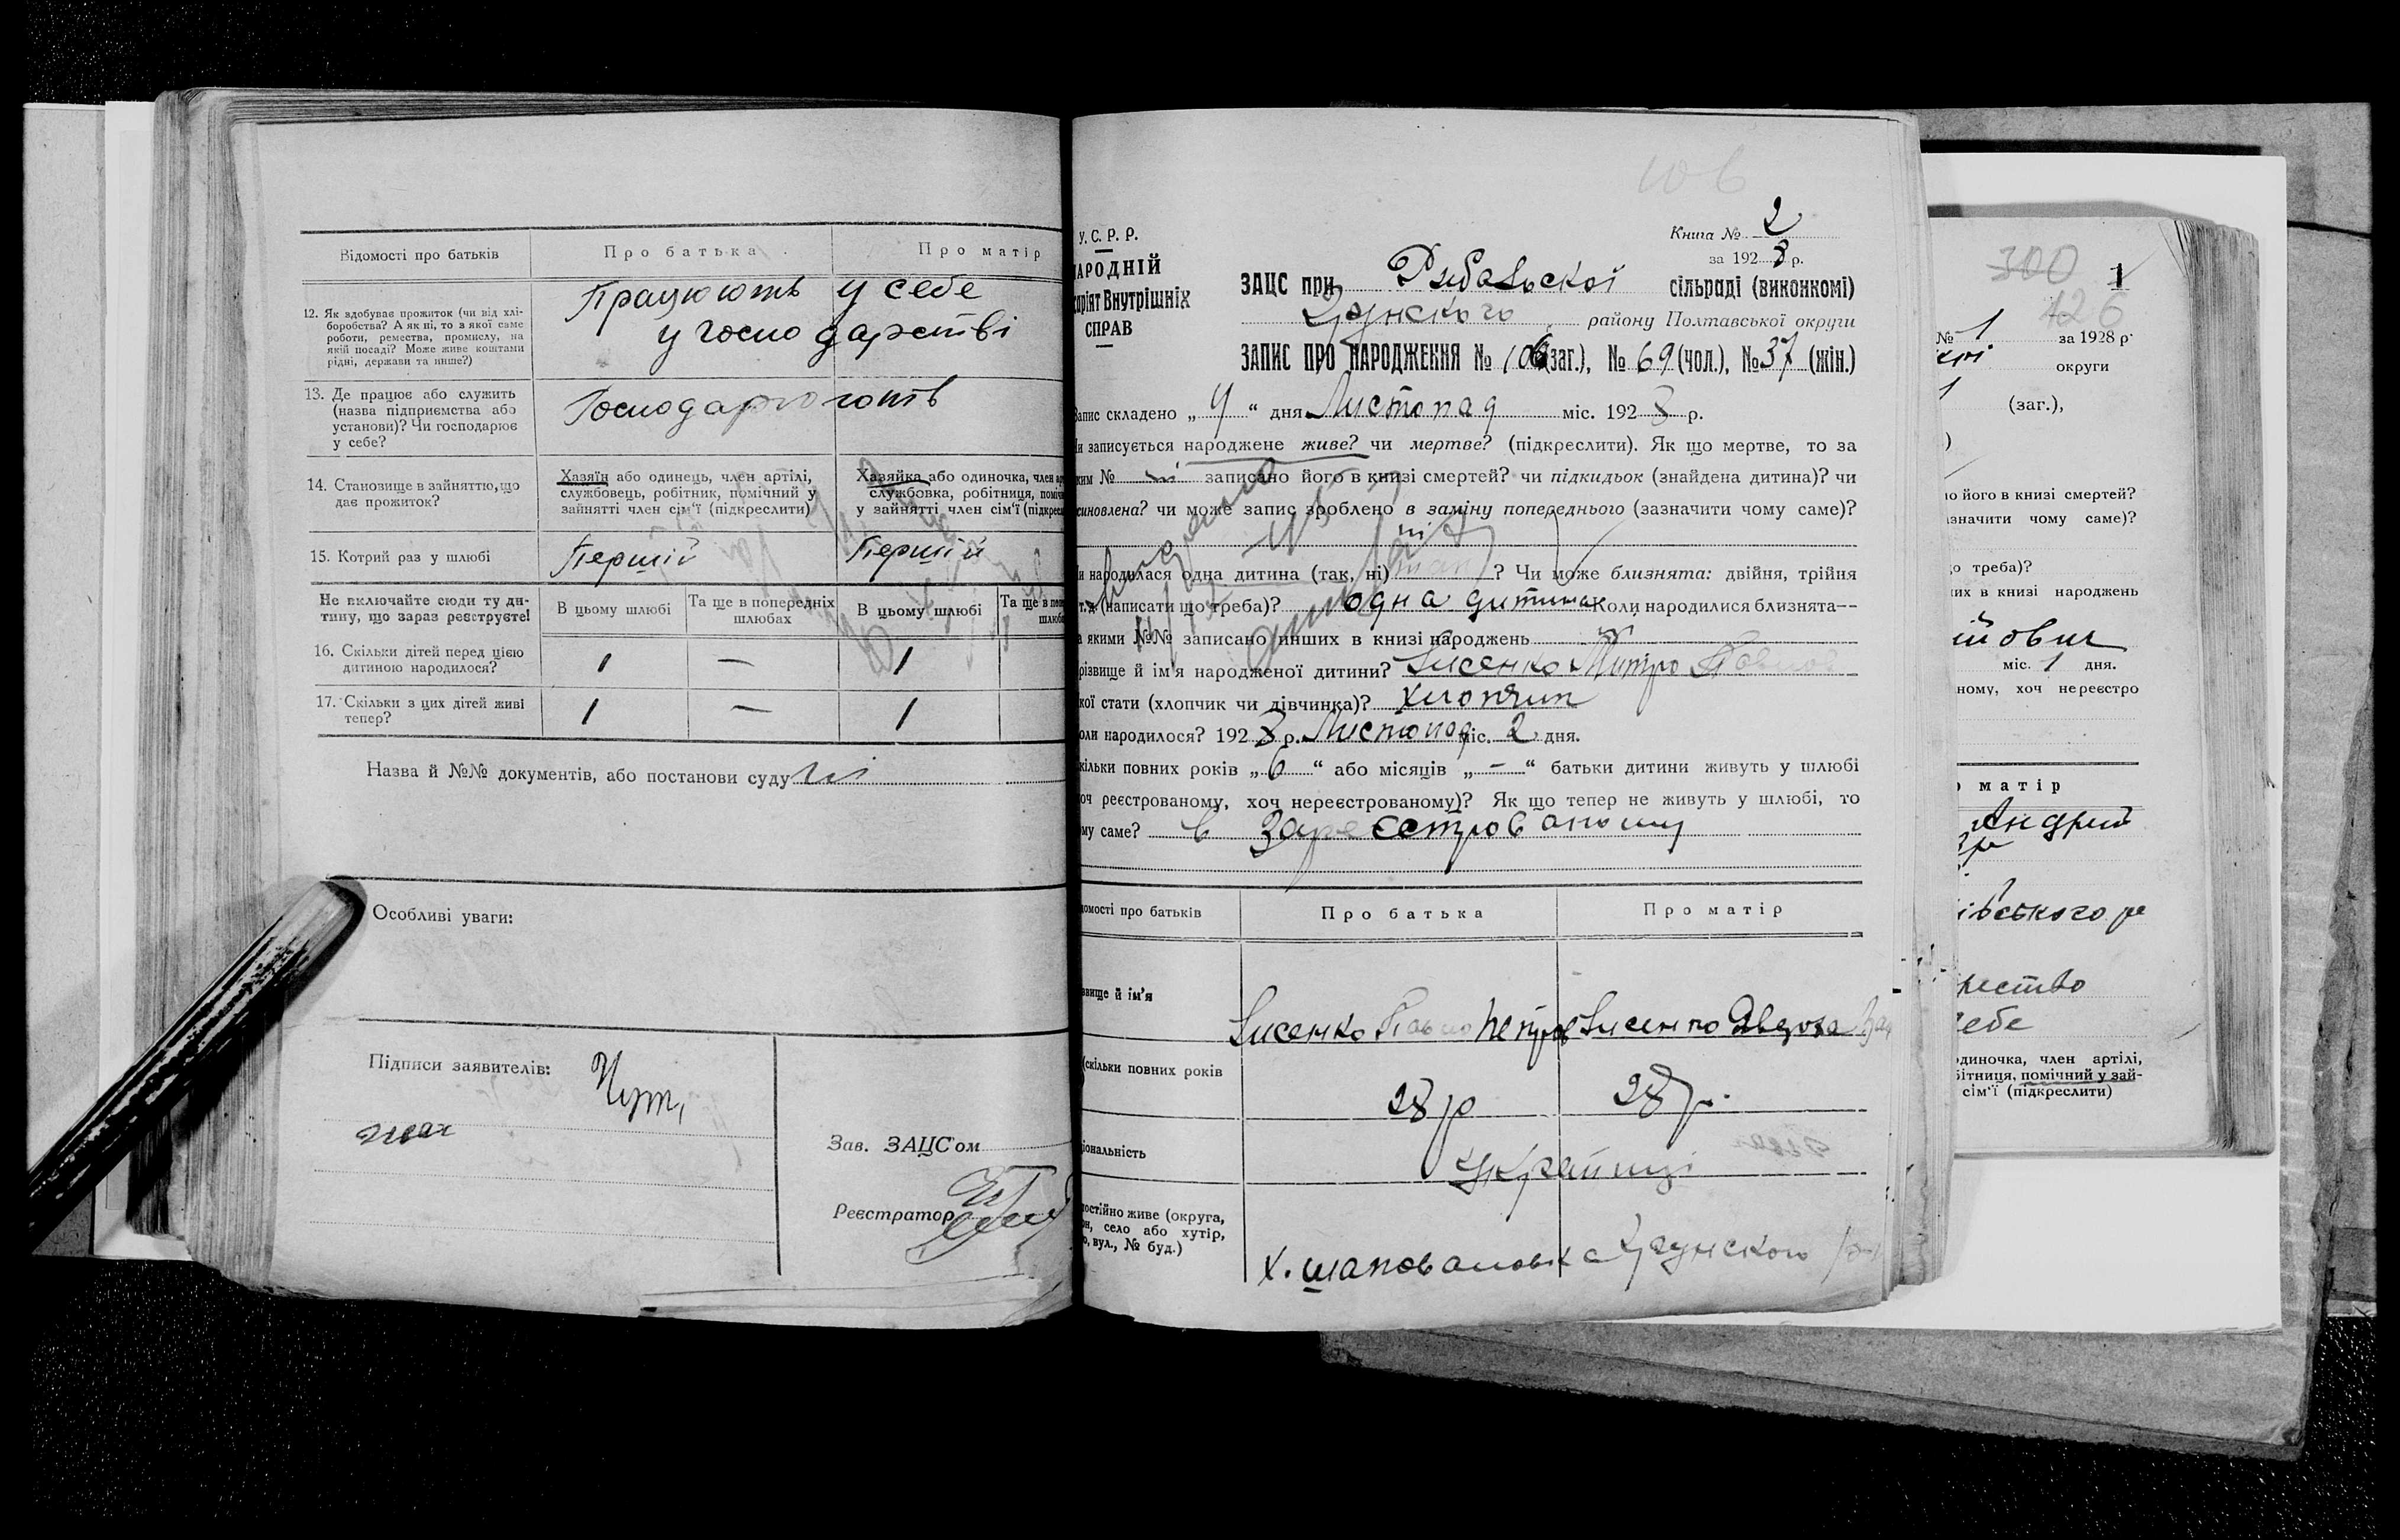 Відомості про батьків
Про батька
Про матір
12. Як здобуває прожиток (чи від хлі-
боробства? А як ні, то з якої саме
роботи, ремества, промислу, на
якій посаді? Може живе коштами
рідні, держави та инше?)
Працюють у себе
у господарстві
13. Де працює або служить
(назва підприємства або
установи)? Чи господарює
у себе?
Господарюють
14. Становище в зайняттю, що
дає прожиток?
Хазяїн або одинець, член артілі,
службовець, робітник, помічний у
зайнятті член сім'ї (підкреслити)
Хазяйка або одиночка, член ар
службовка, робітниця, поміч
у зайнятті член сім'ї (підкресл
15. Котрий раз у шлюбі
Першій
Першій
Не включайте сюди ту ди-
тину, що зараз реєструєте!
В цьому шлюбі
Та ще в попередніх
шлюбах
В цьому шлюбі
Та ще в поп
шлюб
16. Скільки дітей перед цією
дитиною народилося?
1 — 1
17. Скільки з цих дітей живі
тепер?
1 — 1
Назва й №№ документів, або постанови суду ні
Особливі уваги:
Підписи заявителів:
Зав. ЗАЦС'ом
Реєстратор
106
У. С. Р. Р.
АРОДНІЙ
аріят Внутрішніх
СПРАВ
Книга № 2
за 1928 р.
ЗАЦС при Рибальскої сільраді (виконкомі)
району Полтавської округи
ЗАПИС ПРО НАРОДЖЕННЯ № 106 (заг.), № 69 (чол.), № 37 (жін.)
Запис складено „4“ дня Листопад міс. 1928 р.
и записується народжене живе? чи мертве? (підкреслити). Як що мертве, то за
ким № ні записано його в книзі смертей? чи підкидьок (знайдена дитина)? чи
синовлена? чи може запис зроблено в заміну попереднього (зазначити чому саме)?
ні
и народилася одна дитина (так, ні) так? Чи може близнята: двійня, трійня
т. д. (написати що треба)? одна дитина Коли народилися близнята—
а якими №№ записано инших в книзі народжень ні
різвище й ім'я народженої дитини? Лисенко Митро Павлов
кої стати (хлопчик чи дівчинка)? Хлопчик
оли народилося? 1928 р. Листопад міс. 2 дня.
кільки повних років „6“ або місяців „—“ батьки дитини живуть у шлюбі
оч реєстрованому, хоч нереєстрованому)? Як що тепер не живуть у шлюбі, то
му саме? в Зареєстрованому
домості про батьків
Про батька
Про матір
звище й ім'я
Лисенко Павло Петров
Лисенко Явдоха
(скільки повних років
28 р
28 р.
іональність
Українці
остійно живе (округа,
н, село або хутір,
о, вул., № буд.)
х. Шаповаловка
300
126
1
№ 1 за 1928 р.
округи
(заг.),
о його в книзі смертей?
азначити чому саме)?
о треба)?
их в книзі народжень
йович
міс. 1 дня.
ному, хоч нереєстро
о матір
Андрій
івського ра
себе
одиночка, член артілі,
бітниця, помічний у зай-
сім'ї (підкреслити)